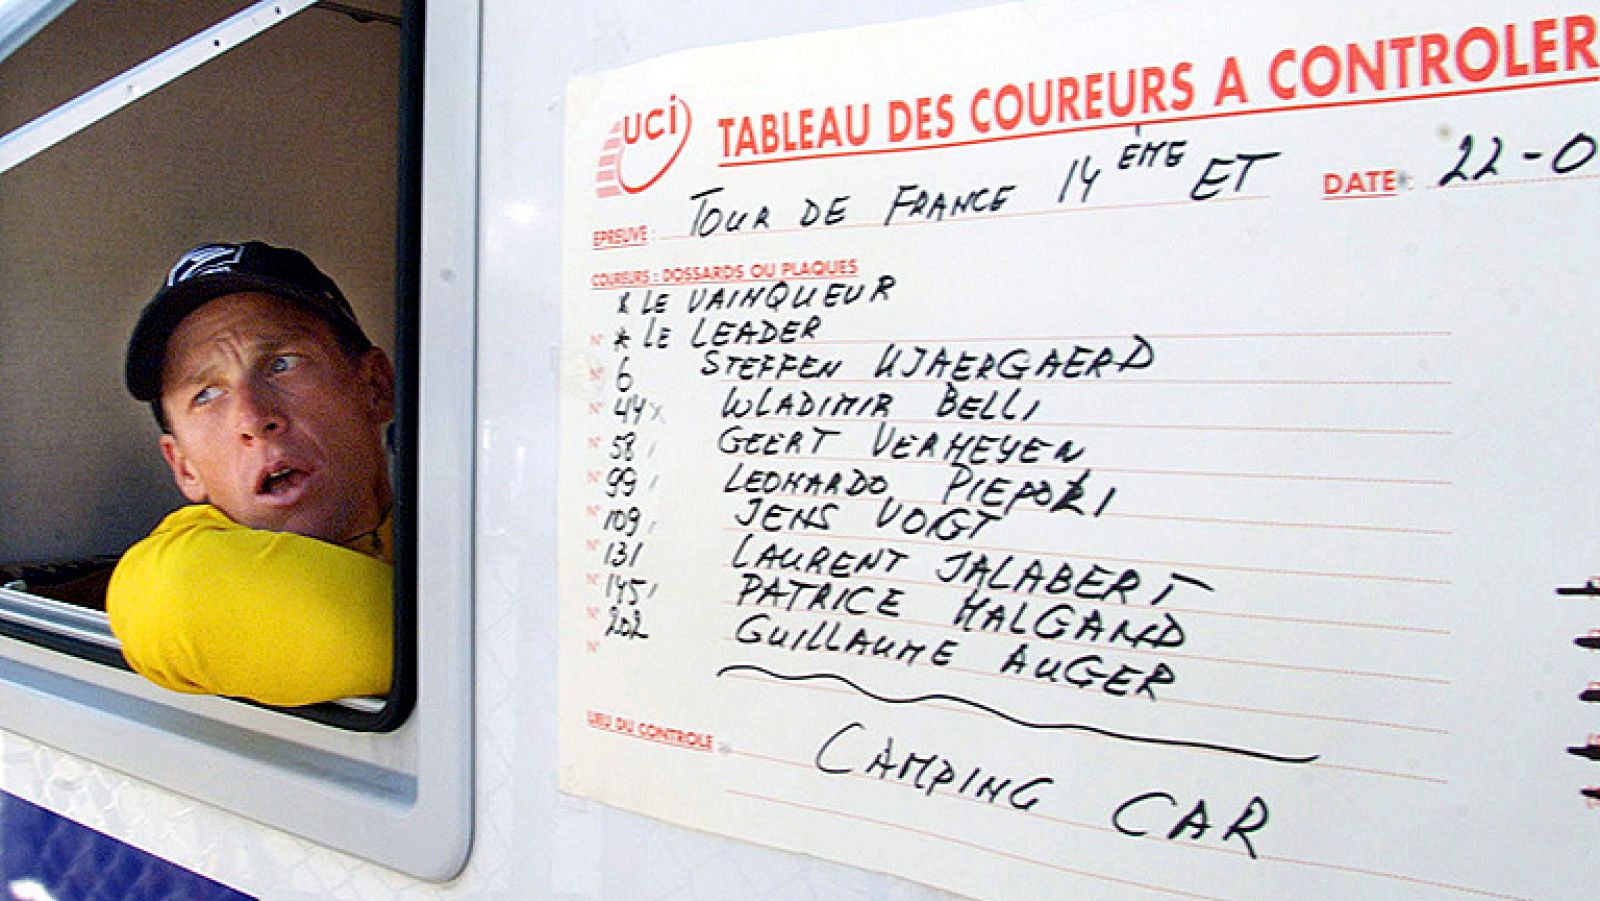 UCi
TABLEAU DES COUREURS A CONTROLER
EPREUVE : TOUR DE FRANCE 14 EME ET DATE : 22-0
COUREURS : DOSSARDS OU PLAQUES
* LE VAINQUEUR
N° * LE LEADER
N° 6 STEFFEN KJAERGAERD
N° 44 WLADIMIR BELLI
N° 58 GEERT VERHEYEN
N° 99 LEONARDO PIEPOLI
N° 109 JENS VOIGT
N° 131 LAURENT JALABERT
N° 145 PATRICE HALGAND
N° 202 GUILLAUME AUGER
N°
LIEU DU CONTROLE : CAMPING CAR